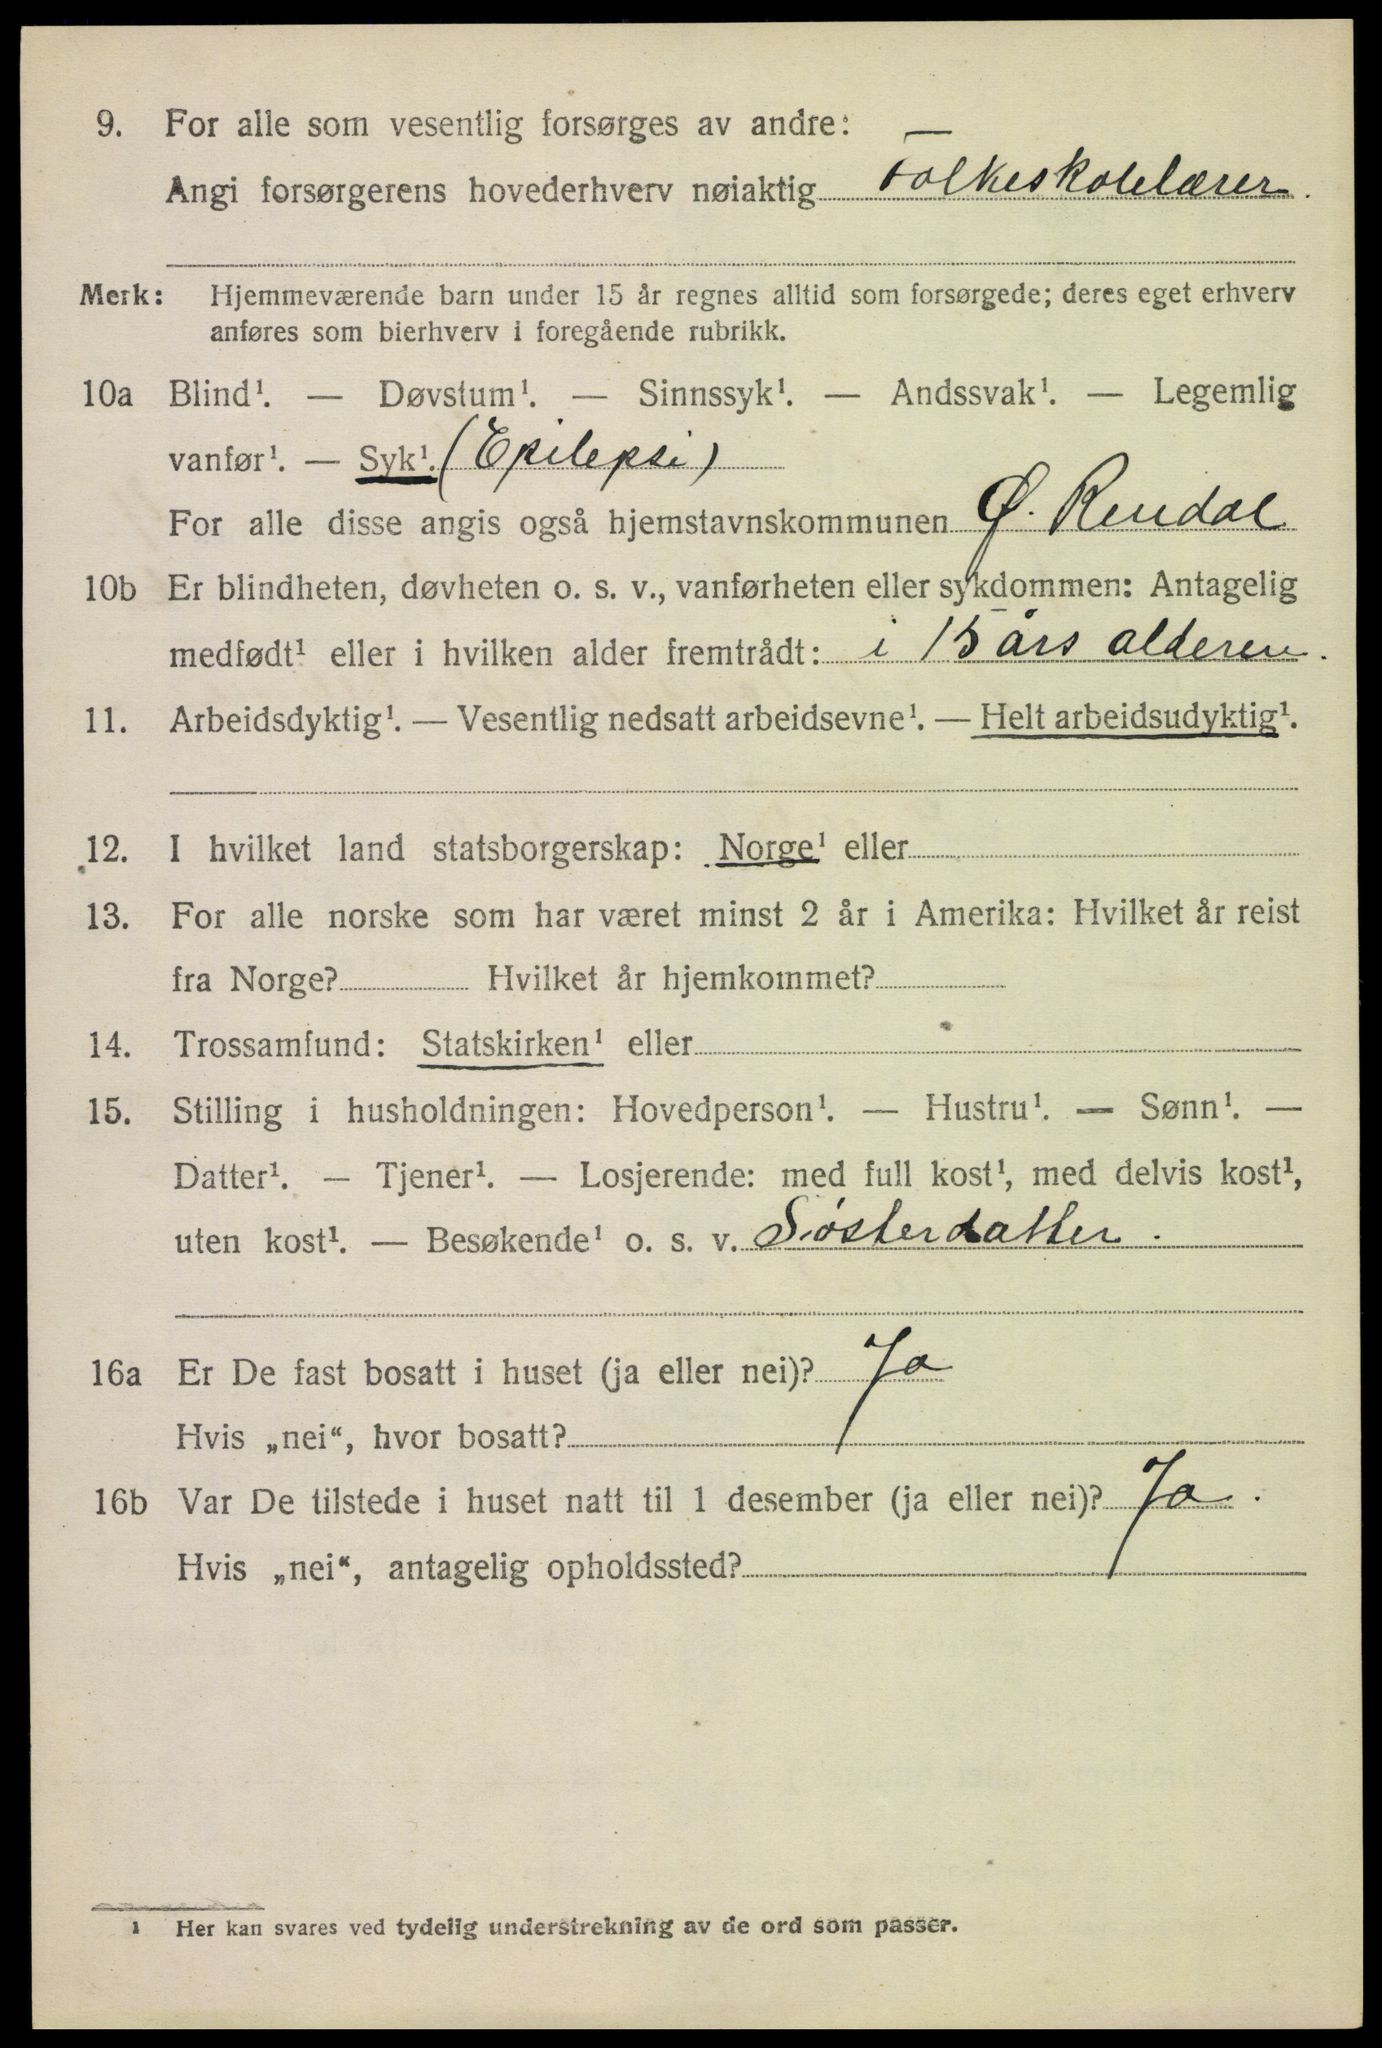 9. For alle som vesentlig forsørges av andre:
Angi forsørgerens hovederhverv nøiaktig Folkeskolelærer.
Merk: Hjemmeværende barn under 15 år regnes alltid som forsørgede; deres eget erhverv
anføres som bierhverv i foregående rubrikk.
10a Blind¹. — Døvstum¹. — Sinnssyk¹. — Andssvak¹. — Legemlig
vanfør¹. — Syk¹. (Epilepsi)
For alle disse angis også hjemstavnskommunen Ø. Rendal
10b Er blindheten, døvheten o. s. v., vanførheten eller sykdommen: Antagelig
medfødt¹ eller i hvilken alder fremtrådt: i 15 års alderen.
11. Arbeidsdyktig¹. — Vesentlig nedsatt arbeidsevne¹. — Helt arbeidsudyktig¹.
12. I hvilket land statsborgerskap: Norge¹ eller
13. For alle norske som har været minst 2 år i Amerika: Hvilket år reist
fra Norge? Hvilket år hjemkommet?
14. Trossamfund: Statskirken¹ eller
15. Stilling i husholdningen: Hovedperson¹. — Hustru¹. — Sønn¹. —
Datter¹. — Tjener¹. — Losjerende: med full kost¹, med delvis kost¹,
uten kost¹. — Besøkende¹ o. s. v. Søsterdatter.
16a Er De fast bosatt i huset (ja eller nei)? Ja
Hvis „nei“, hvor bosatt?
16b Var De tilstede i huset natt til 1 desember (ja eller nei)? Ja.
Hvis „nei“, antagelig opholdssted?
¹ Her kan svares ved tydelig understrekning av de ord som passer.